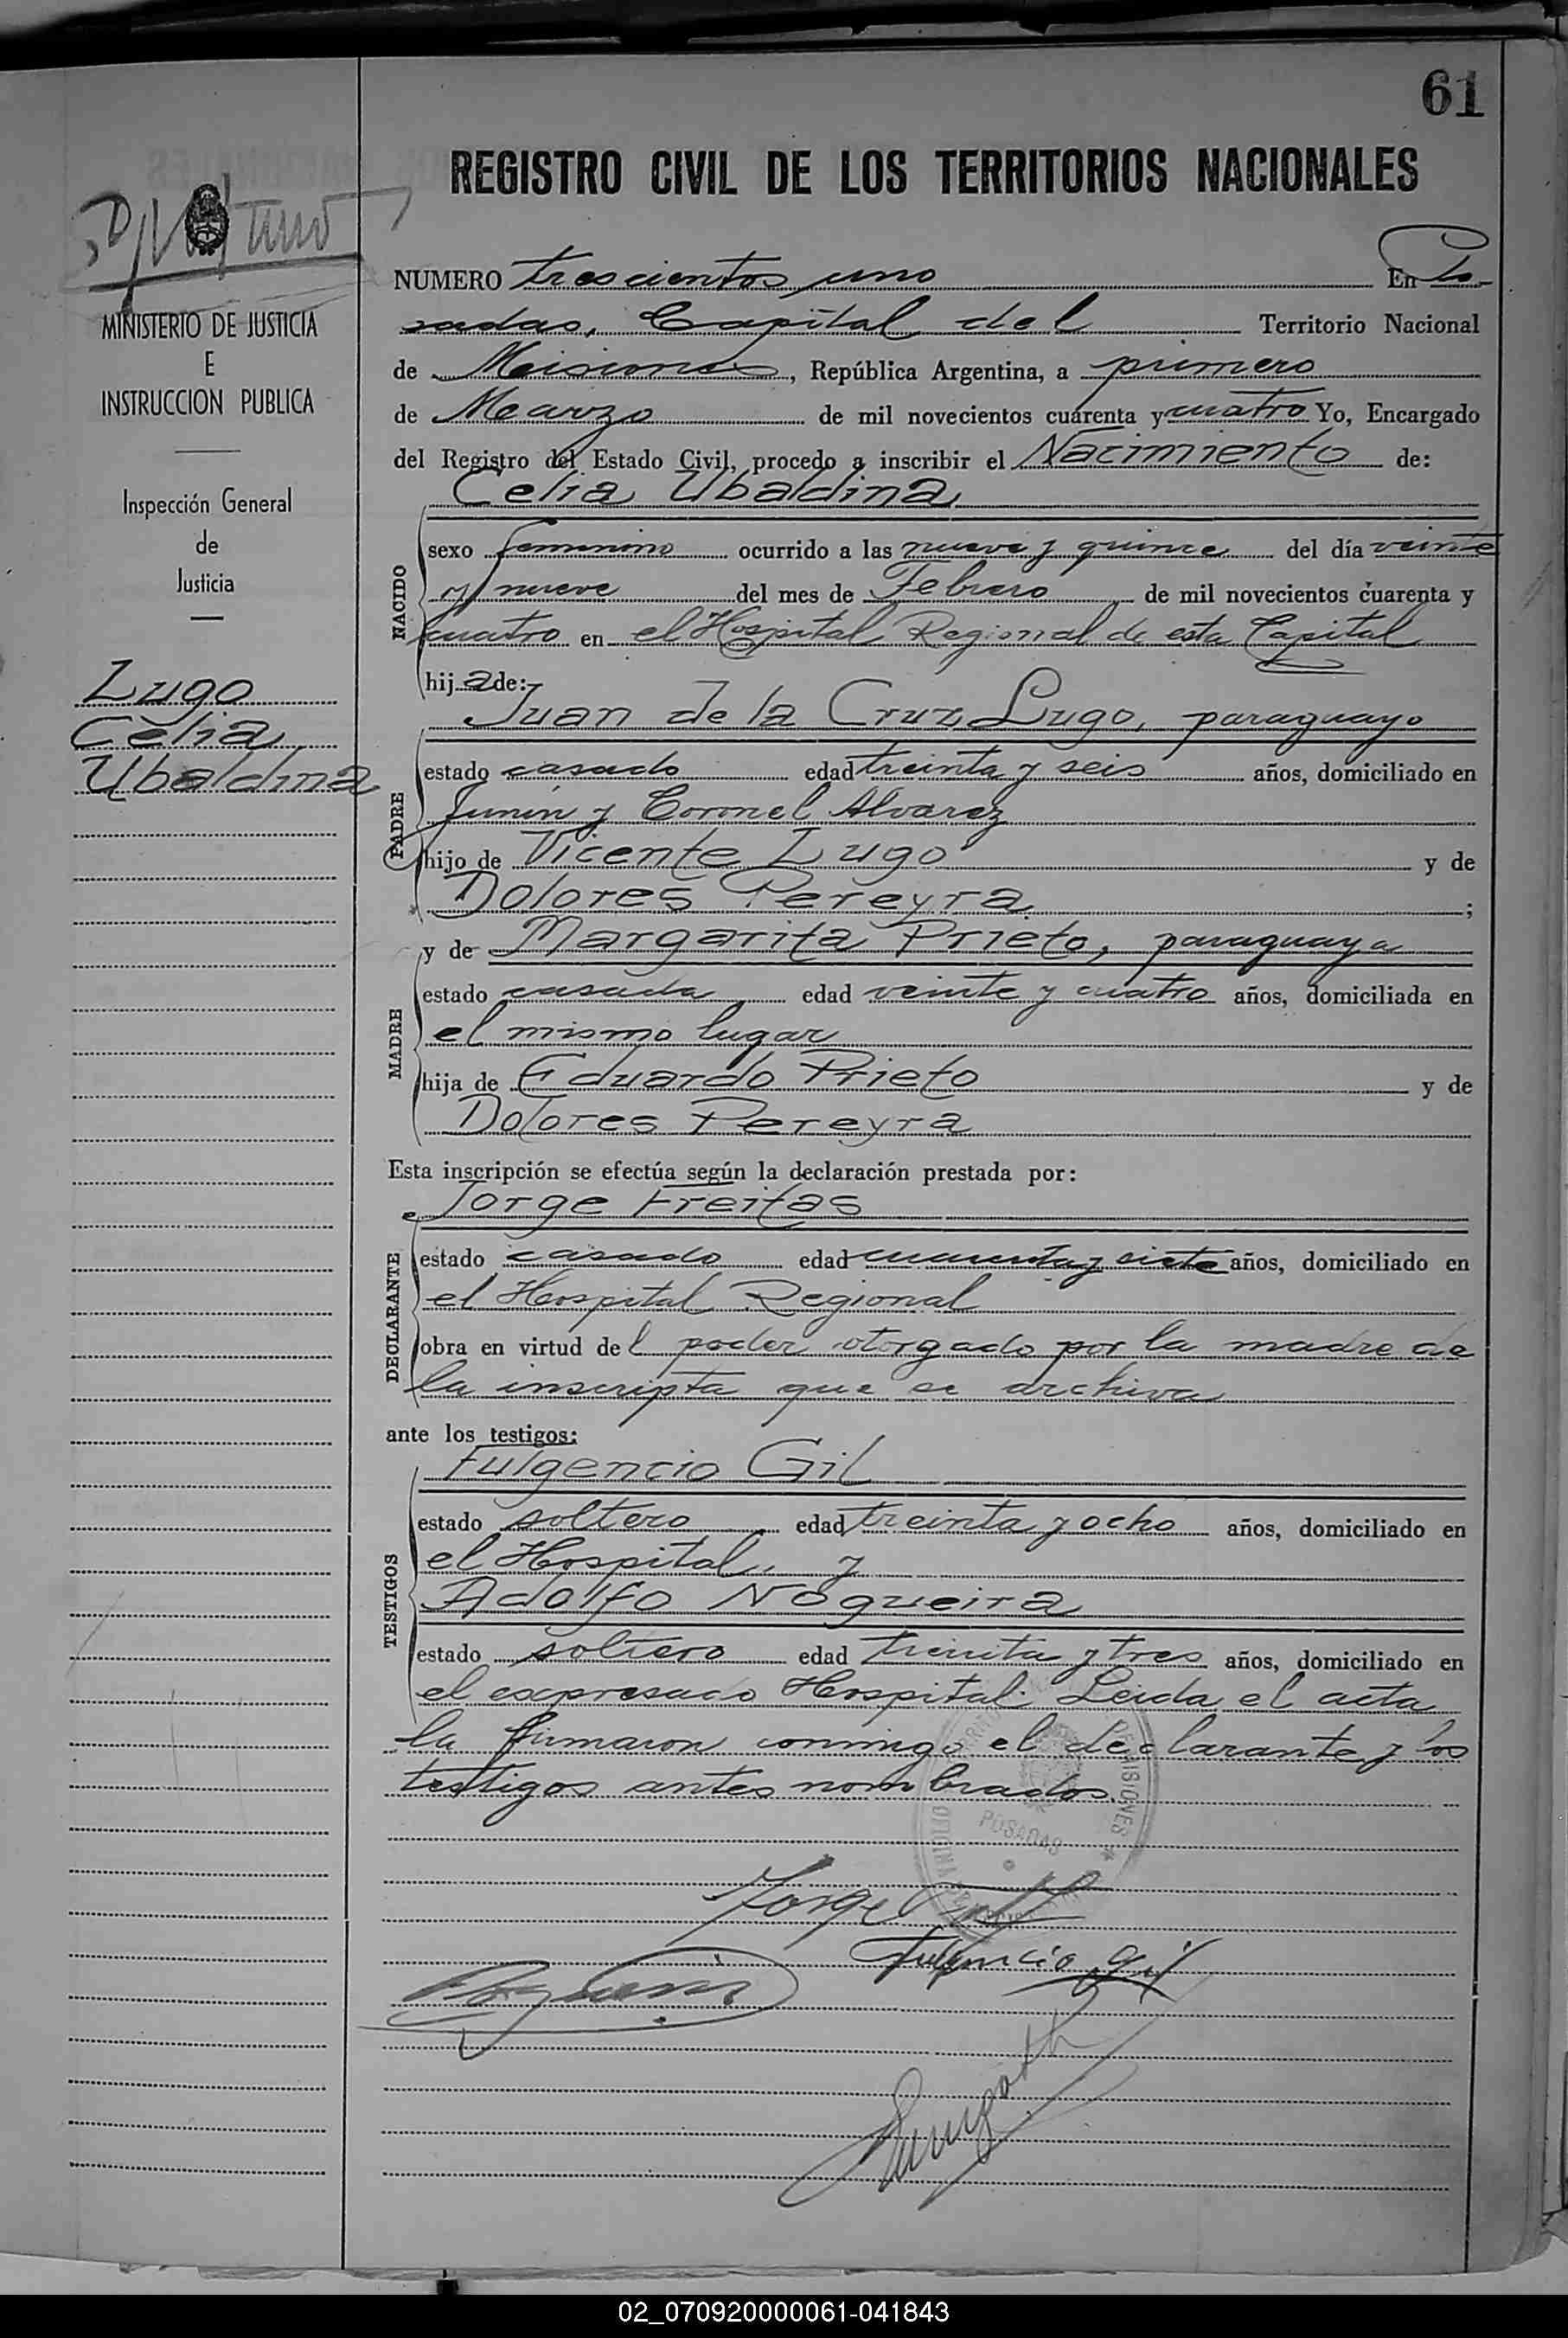 61
REGISTRO CIVIL DE LOS TERRITORIOS NACIONALES
MINISTERIO DE JUSTICIA
E
INSTRUCCION PUBLICA
Inspección General
de
Justicia
Lugo
Celia
Ubaldina
NUMERO trescientos uno En Po-
sadas, Capital del Territorio Nacional
de Misiones, República Argentina, a primero
de Marzo de mil novecientos cuarenta y cuatro Yo, Encargado
del Registro del Estado Civil, procedo a inscribir el Nacimiento de:
Celia Ubaldina
NACIDO
sexo femenino ocurrido a las nueve y quince del día veinte
y nueve del mes de Febrero de mil novecientos cuarenta y
cuatro en el Hospital Regional de esta Capital
hija de:
Juan de la Cruz Lugo, paraguayo
PADRE
estado casado edad treinta y seis años, domiciliado en
Junín y Coronel Alvarez
hijo de Vicente Lugo y de
Dolores Pereyra ;
y de Margarita Prieto, paraguaya
MADRE
estado casada edad veinte y cuatro años, domiciliada en
el mismo lugar
hija de Eduardo Prieto y de
Dolores Pereyra
Esta inscripción se efectúa según la declaración prestada por:
Jorge Freitas
DECLARANTE
estado casado edad cuarenta y siete años, domiciliado en
el Hospital Regional
obra en virtud del poder otorgado por la madre de
la inscripta que se archiva
ante los testigos:
Fulgencio Gil
TESTIGOS
estado soltero edad treinta y ocho años, domiciliado en
el Hospital, y
Adolfo Nogueira
estado soltero edad treinta y tres años, domiciliado en
el expresado Hospital. Leida el acta
la firmaron conmigo el declarante y los
testigos antes nombrados.
MISIONES
POSADAS
OFICINA
Jorge
Fulgencio Gil
02_070920000061-041843